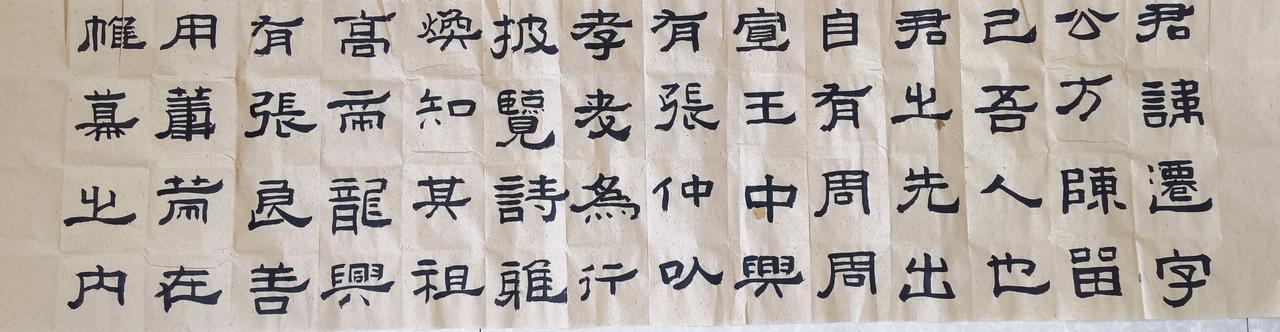 君諱遷字
公方陳留
己吾人也
君之先出
自有周周
宣王中興
有張仲以
孝友為行
披覽詩雅
煥知其祖
高帝龍興
有張良善
用籌策在
帷幕之內